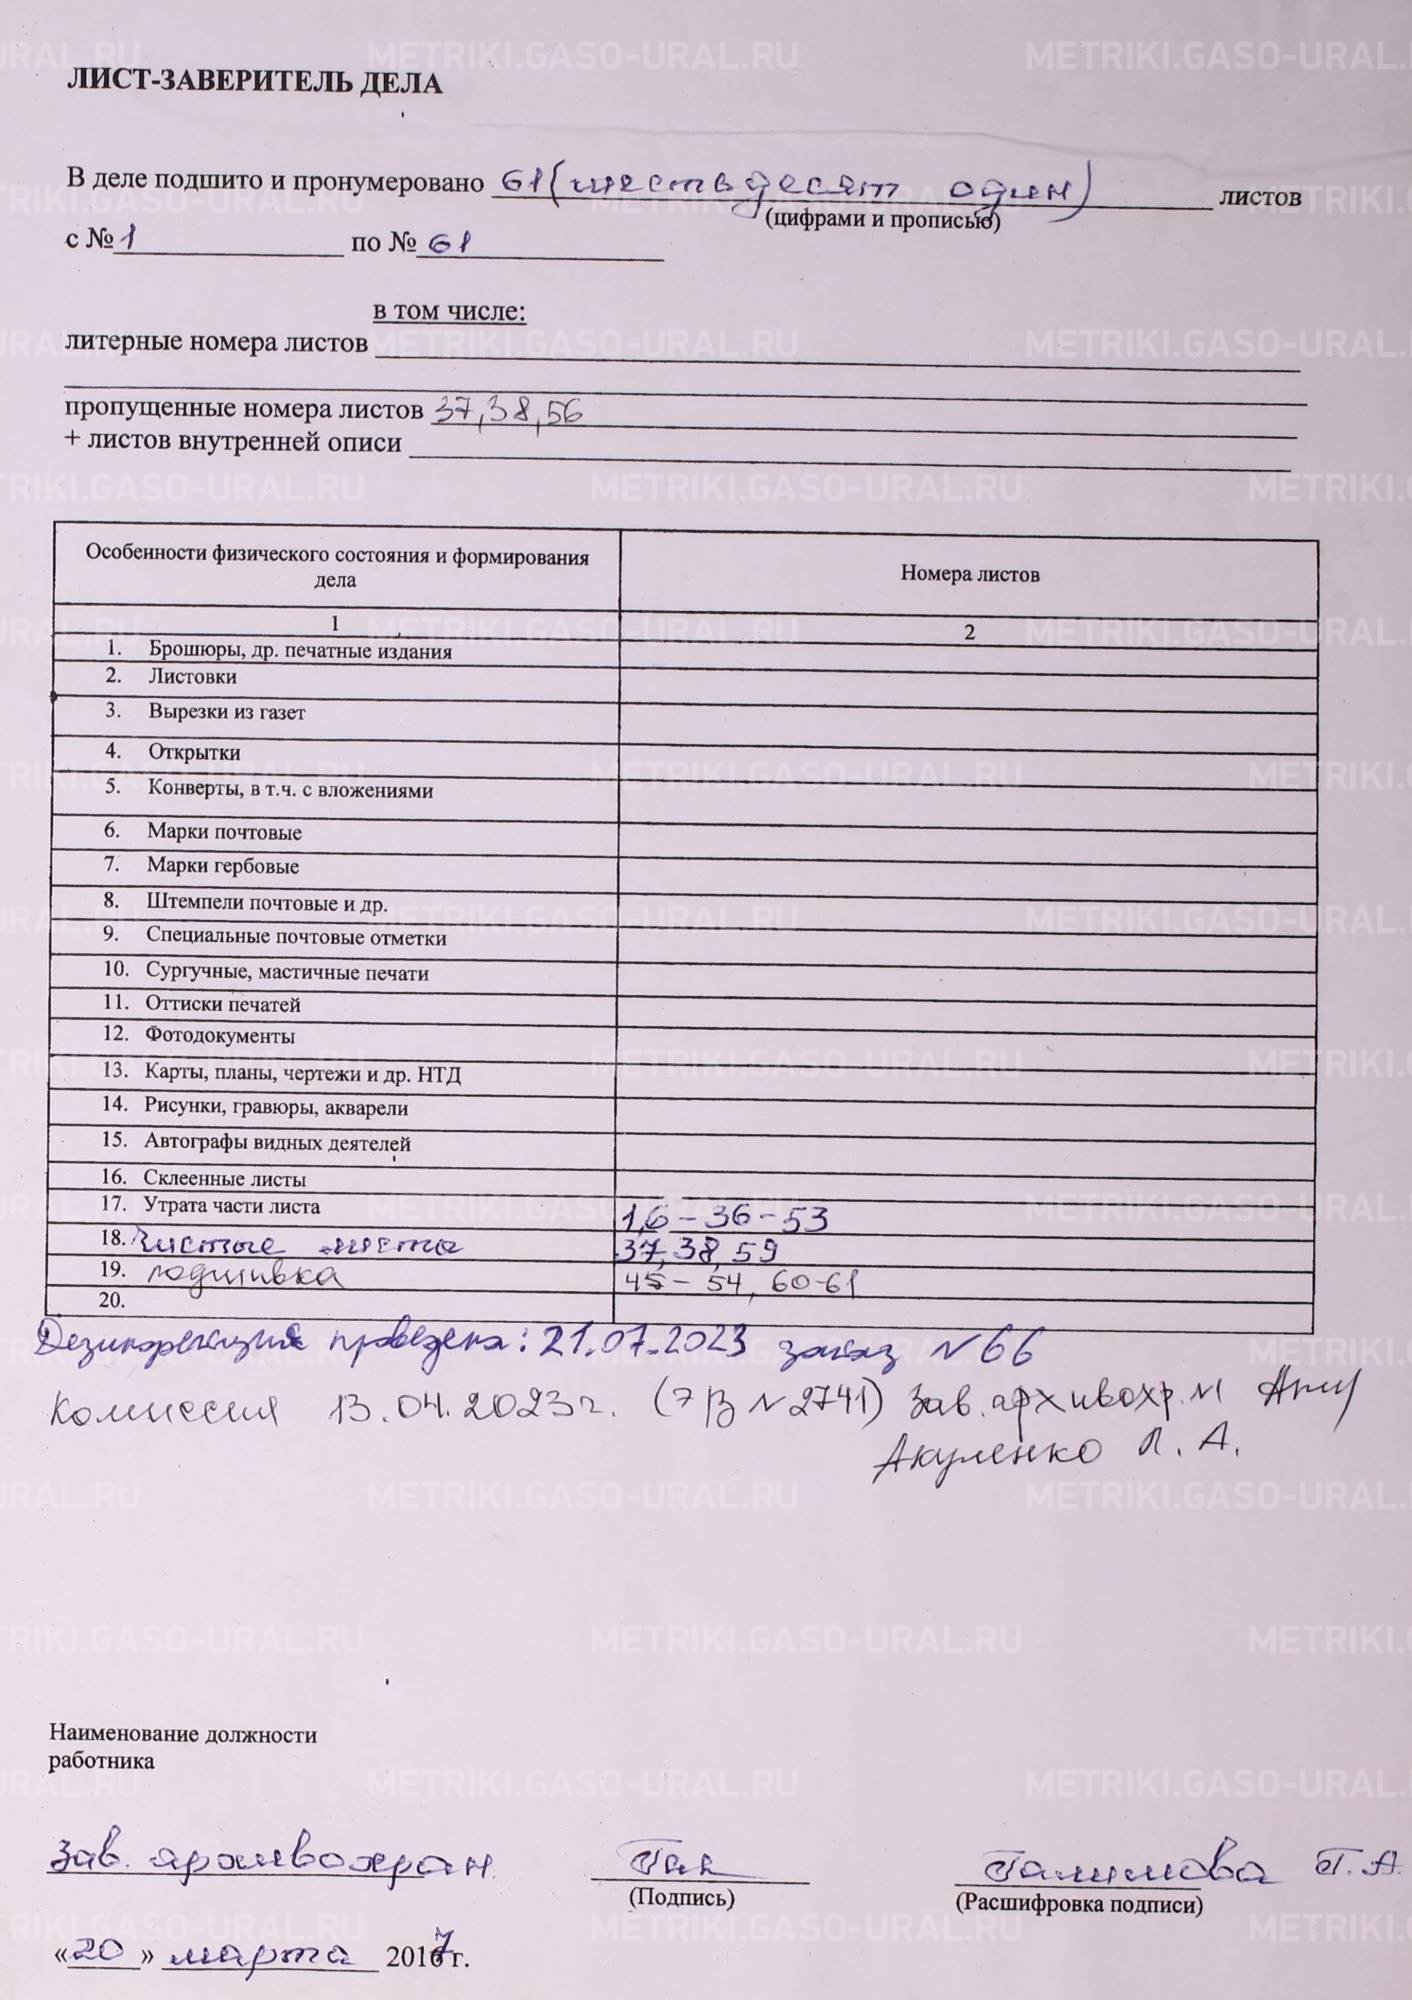 ЛИСТ-ЗАВЕРИТЕЛЬ ДЕЛА
В деле подшито и пронумеровано 61 (шестьдесят один) листов
(цифрами и прописью)
с № 1 по № 61
в том числе:
литерные номера листов
пропущенные номера листов 37,38,56
+ листов внутренней описи
Особенности физического состояния и формирования дела
Номера листов
1
2
1. Брошюры, др. печатные издания
2. Листовки
3. Вырезки из газет
4. Открытки
5. Конверты, в т.ч. с вложениями
6. Марки почтовые
7. Марки гербовые
8. Штемпели почтовые и др.
9. Специальные почтовые отметки
10. Сургучные, мастичные печати
11. Оттиски печатей
12. Фотодокументы
13. Карты, планы, чертежи и др. НТД
14. Рисунки, гравюры, акварели
15. Автографы видных деятелей
16. Склеенные листы
17. Утрата части листа 1,6-36-53
18. Чистые листы 37,38,59
19. подшивка 45-54, 60-61
20.
Дезинфекция проведена: 21.07.2023 заказ №66
Комиссия 13.04.2023г. (№2741) Зав. архивохр.
Акуленко Л. А.
Наименование должности
работника
Зав. архивохран.
Галимова Г.А.
(Подпись)
(Расшифровка подписи)
«20» марта 2017 г.
METRIKI.GASO-URAL.RU